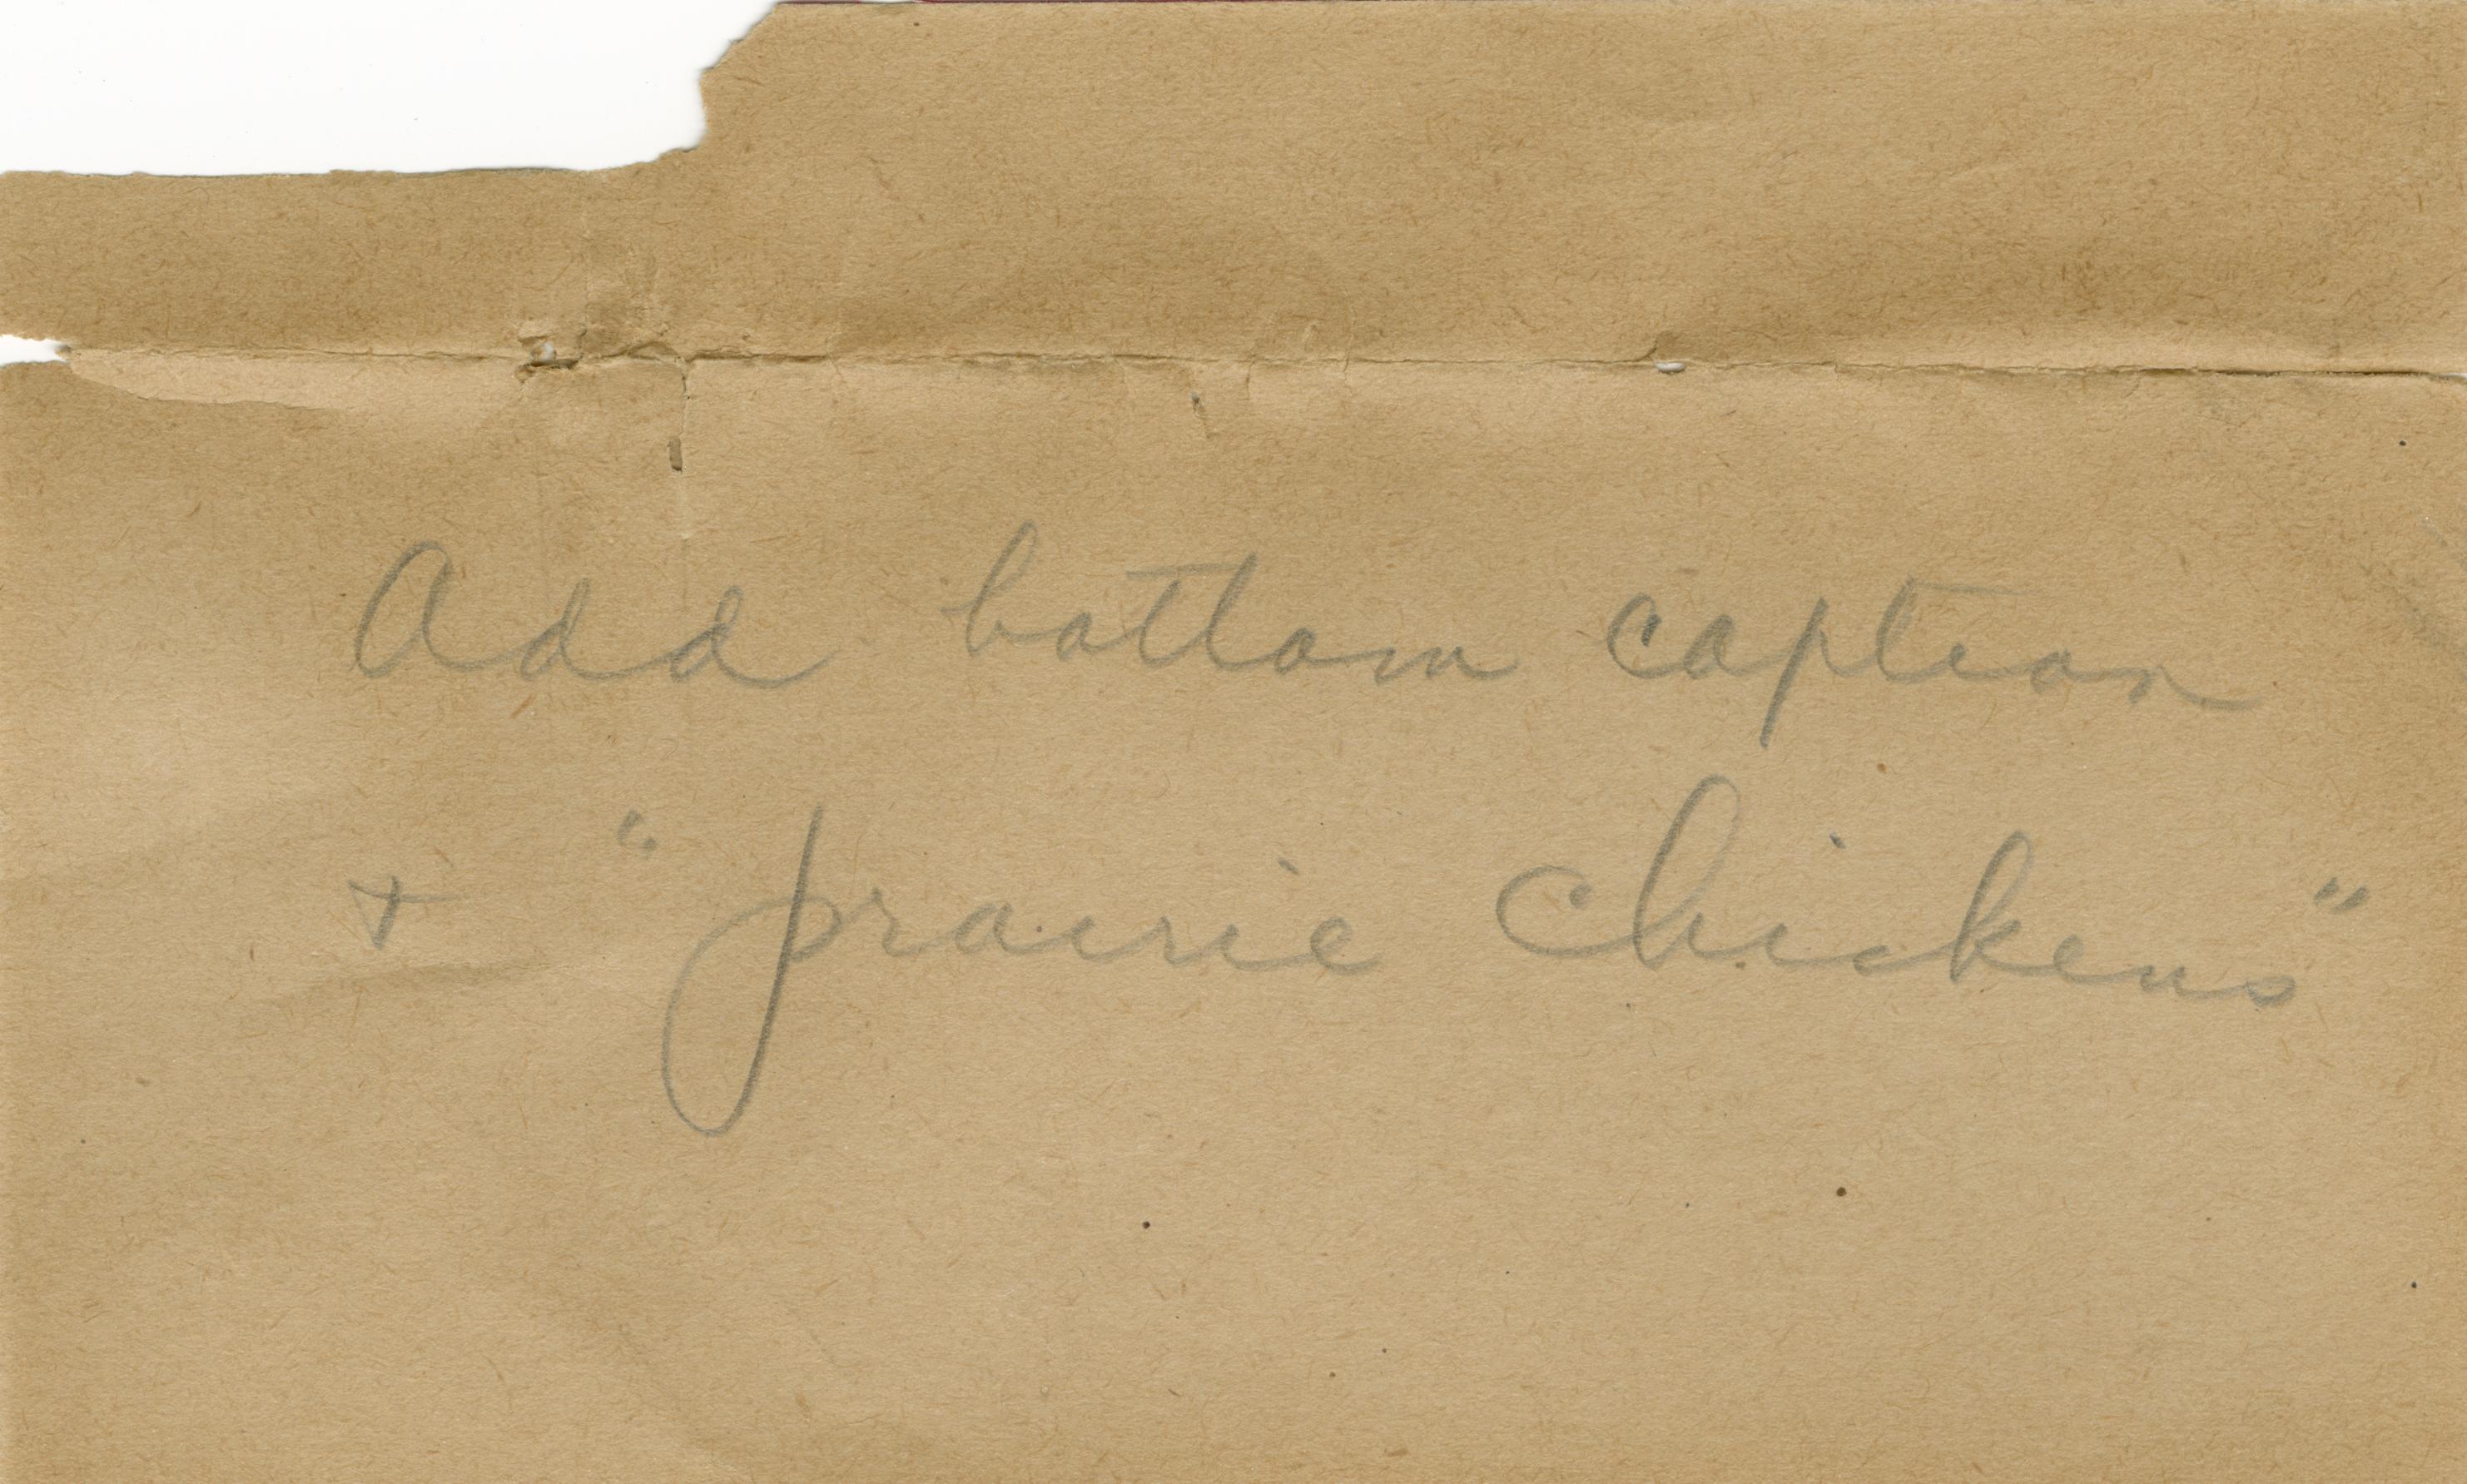 Add bottom caption
+ "prairie chickens"